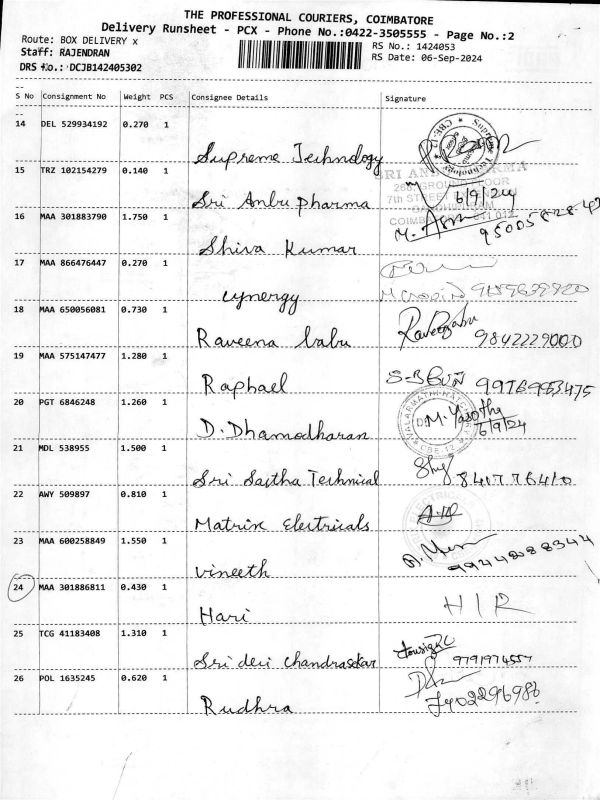 THE PROFESSIONAL COURIERS, COIMBATORE
Delivery Runsheet - PCX - Phone No.:0422-3505555 - Page No.:2
Route: BOX DELIVERY x
Staff: RAJENDRAN
DRS No.: DCJB142405302
RS No.: 1424053
RS Date: 06-Sep-2024
S No Consignment No Weight PCS Consignee Details Signature
14 DEL 529934192 0.270 1
Supreme Technology
15 TRZ 102154279 0.140 1
Sri Anbu pharma
6/9/24
16 MAA 301883790 1.750 1
Shiva Kumar
17 MAA 866476447 0.270 1
cynergy
18 MAA 650056081 0.730 1
Raveena babu
9842229000
19 MAA 575147477 1.280 1
Raphael
20 PGT 6846248 1.260 1
D. Dhamodharan
M. Yasotha
6/9/24
21 MDL 538955 1.500 1
Sri Sastha Technical
22 AWY 509897 0.810 1
Matrix Electricals
23 MAA 600258849 1.550 1
Vineeth
9944888344
24 MAA 301886811 0.430 1
Hari
25 TCG 41183408 1.310 1
Sri devi chandrasekar
26 POL 1635245 0.620 1
Rudhra
7402296986